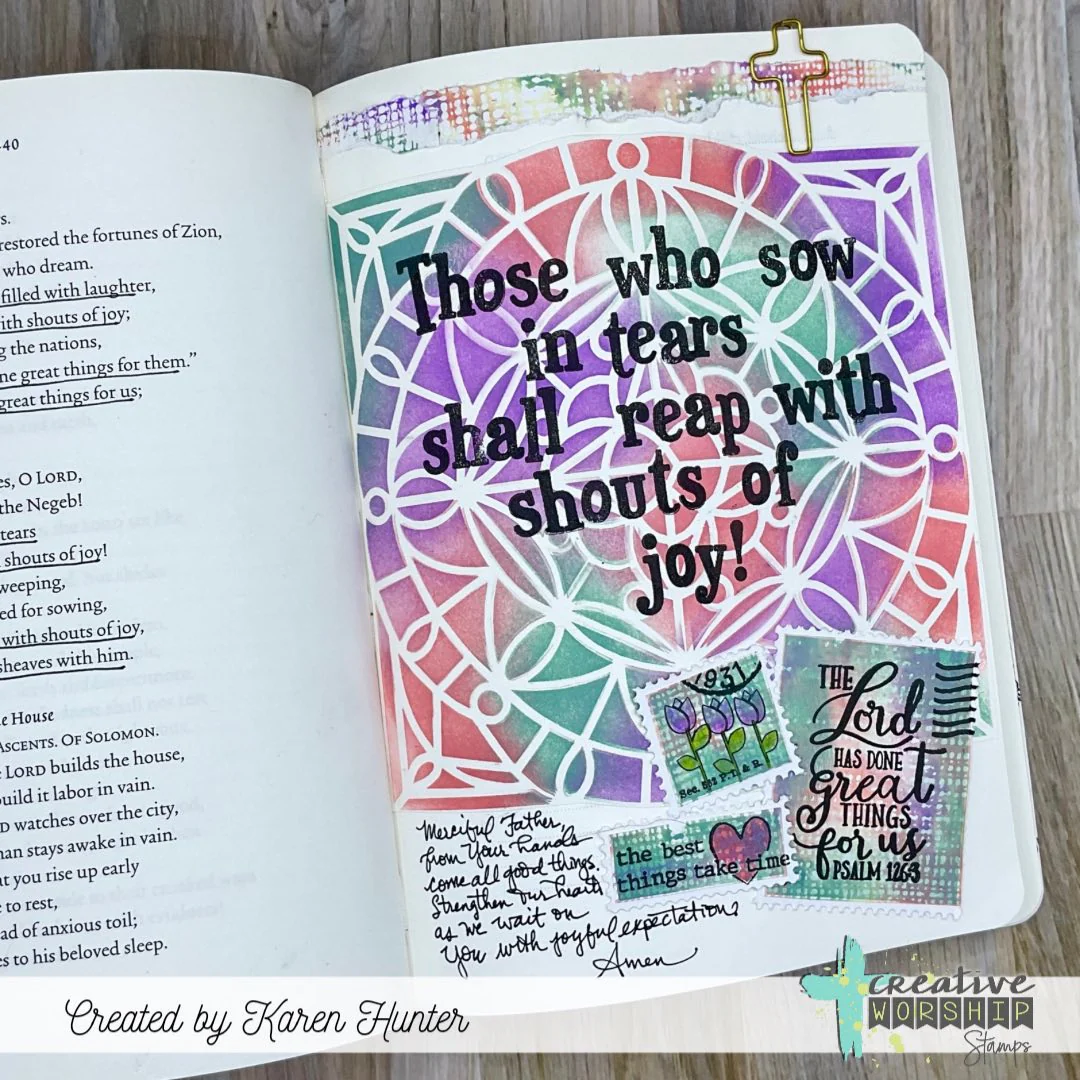 -40
s.
restored the fortunes of Zion,
who dream.
filled with laughter,
ith shouts of joy;
g the nations,
ne great things for them.”
great things for us;
es, O LORD,
the Negeb!
tears
shouts of joy!
weeping,
ed for sowing,
with shouts of joy,
sheaves with him.
e House
ASCENTS. OF SOLOMON.
LORD builds the house,
build it labor in vain.
D watches over the city,
man stays awake in vain.
at you rise up early
e to rest,
ad of anxious toil;
es to his beloved sleep.
Those who sow
in tears
shall reap with
shouts of
joy!
1931
Sec. 562 P.L. & R.
THE
Lord
HAS DONE
great
THINGS
for us
PSALM 126:3
the best
things take time
Merciful Father,
from Your hands
come all good things.
Strengthen our hearts
as we wait on
You with joyful expectation.
Amen
Created by Karen Hunter
creative
WORSHIP
Stamps